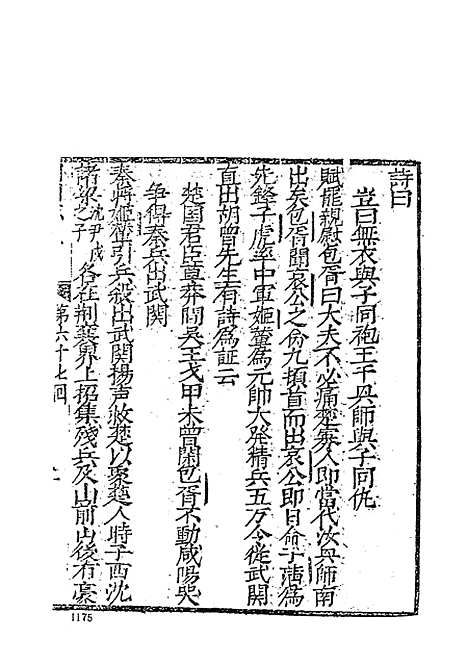 詩曰
豈曰無衣與子同袍王于興師與子同仇
賦罷親慰包胥曰大夫不必痛楚寡人即當代汝興師南
出矣包胥聞哀公之命九頓首而出哀公即日命子蒲為
先鋒子虎率中軍姬輦為元帥大發精兵五万令從武関
直出胡曾先生有詩為証云
楚國君臣草莽間吳王戈甲未曾閑包胥不動咸陽哭
争得秦兵出武関
秦將姬輦引兵殺出武関揚声救楚以聚楚人時子西沈
諸梁沈尹戌之子各在荊襄界上招集殘兵及山前山後有豪
第六十七回
1175